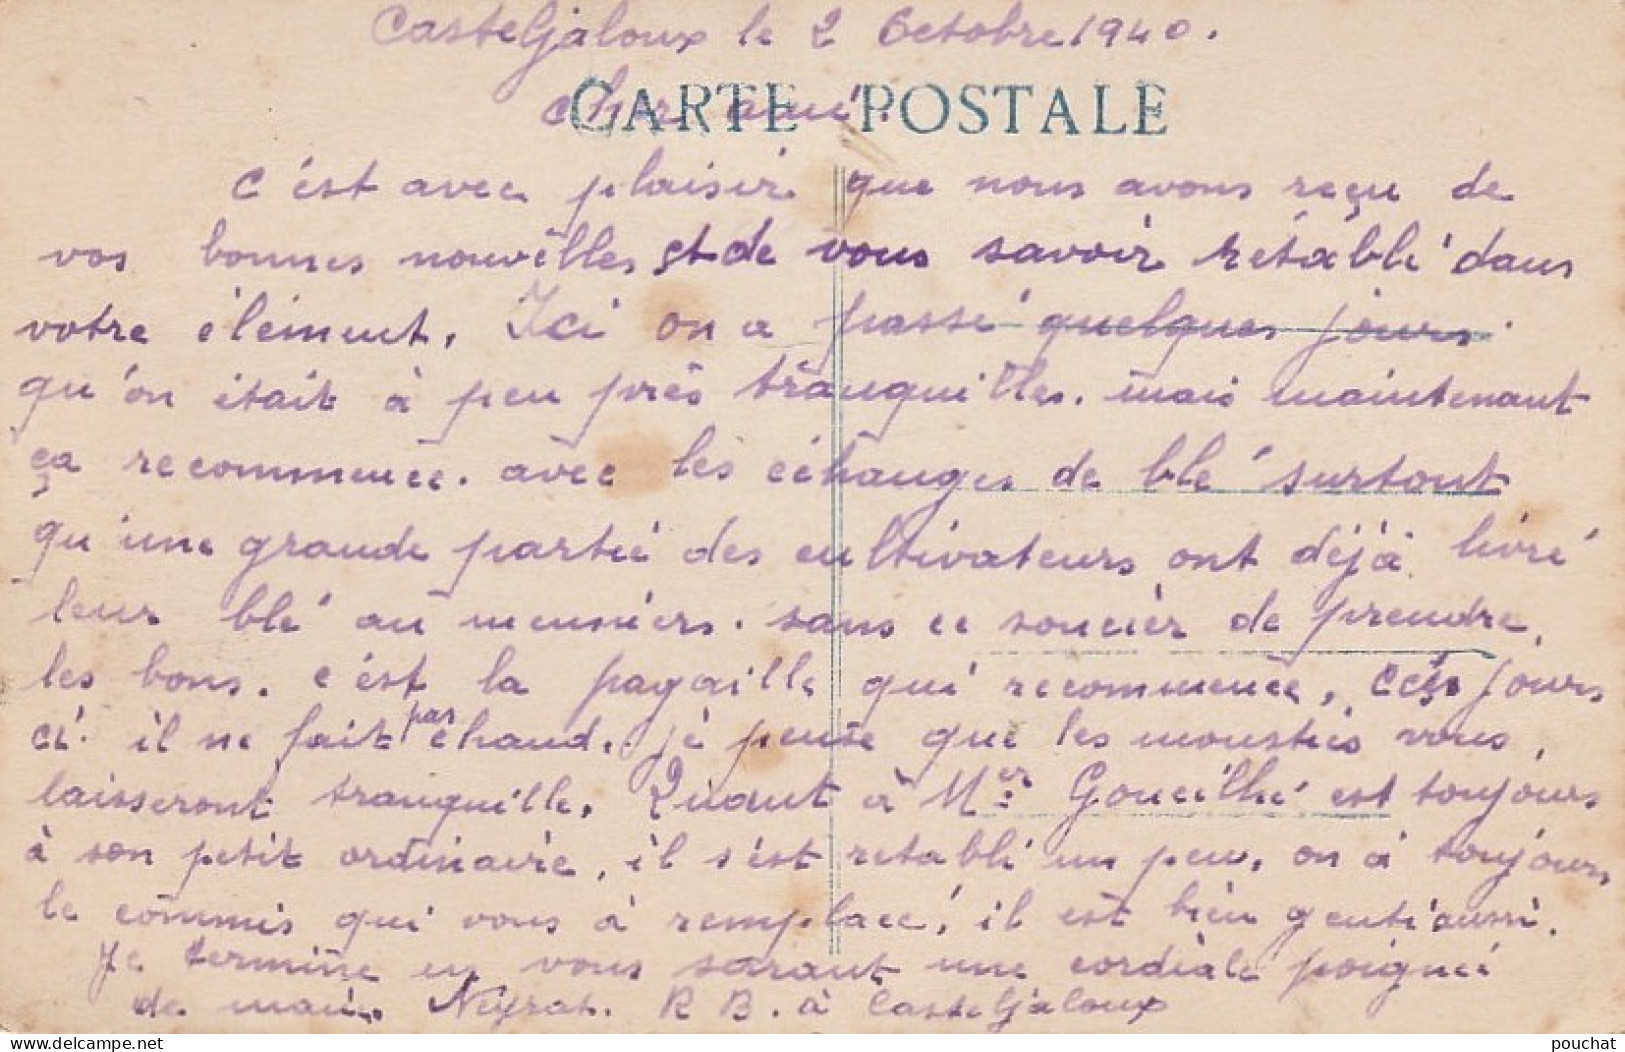 Casteljaloux le 2 Octobre 1940.
CARTE POSTALE
cher ami.
c'est avec plaisir que nous avons reçu de
vos bonnes nouvelles et de vous savoir rétabli dans
votre élément. Ici on a passé quelques jours
qu'on était à peu près tranquilles. mais maintenant
ça recommence. avec les échanges de blé surtout
qu'une grande partie des cultivateurs ont déjà livré
leur blé au meuniers. sans ce soucier de prendre
les bons. c'est la pagaille qui recommence, ces jours
ci il ne fait pas chaud. je pense que les moustics vous
laisseront tranquille. Quant à Mer Goueilhé est toujours
à son petit ordinaire, il s'est retabli un peu, on a toujours
le commis qui vous à remplacé, il est bien gentil aussi.
Je termine en vous serrant une cordiale poignée
de main. Neyrat. R B. à Casteljaloux
pouchat
delcampe.net